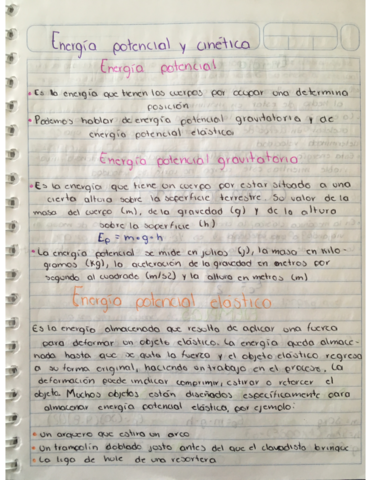 Energía potencial y cinética
Energía potencial
• Es la energía que tienen los cuerpos por ocupar una determina
posición
• Podemos hablar de energía potencial gravitatoria y de
energía potencial elástica
Energía potencial gravitatoria
• Es la energía que tiene un cuerpo por estar situado a una
cierta altura sobre la superficie terrestre. Su valor de la
masa del cuerpo (m), de la gravedad (g) y de la altura
sobre la superficie (h)
Ep = m•g•h
• La energía potencial se mide en julios (j), la masa en kilo-
gramos (kg), la aceleración de la gravedad en metros por
segundo al cuadrado (m/s2) y la altura en metros (m)
Energía potencial elastica
Es la energía almacenada que resulta de aplicar una fuerza
para deformar un objeto elástico. La energía queda almace-
nada hasta que se quita la fuerza y el objeto elástico regresa
a su forma original, haciendo un trabajo en el proceso. La
deformación puede implicar comprimir, estirar o retorcer el
objeto. Muchos objetos están diseñados específicamente para
almacenar energía potencial elástica, por ejemplo:
• Un arquero que estira un arco
• Un trampolín doblado justo antes del que el clavadista brinque
• La liga de hule de una resortera